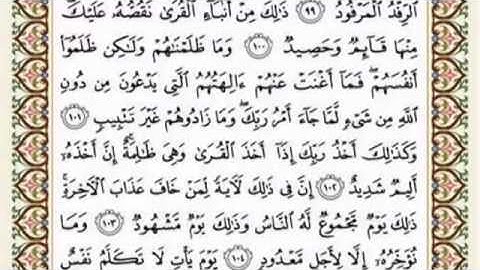 ٱلرِّفْدُ ٱلْمَرْفُودُ ۝٩٩ ذَٰلِكَ مِنْ أَنۢبَآءِ ٱلْقُرَىٰ نَقُصُّهُۥ عَلَيْكَ
مِنْهَا قَآئِمٌ وَحَصِيدٌ ۝١٠٠ وَمَا ظَلَمْنَٰهُمْ وَلَٰكِن ظَلَمُوٓا۟
أَنفُسَهُمْ ۖ فَمَآ أَغْنَتْ عَنْهُمْ ءَالِهَتُهُمُ ٱلَّتِى يَدْعُونَ مِن دُونِ
ٱللَّهِ مِن شَىْءٍ لَّمَّا جَآءَ أَمْرُ رَبِّكَ ۖ وَمَا زَادُوهُمْ غَيْرَ تَتْبِيبٍ ۝١٠١
وَكَذَٰلِكَ أَخْذُ رَبِّكَ إِذَآ أَخَذَ ٱلْقُرَىٰ وَهِىَ ظَٰلِمَةٌ ۚ إِنَّ أَخْذَهُۥٓ
أَلِيمٌ شَدِيدٌ ۝١٠٢ إِنَّ فِى ذَٰلِكَ لَءَايَةً لِّمَنْ خَافَ عَذَابَ ٱلْءَاخِرَةِ ۚ
ذَٰلِكَ يَوْمٌ مَّجْمُوعٌ لَّهُ ٱلنَّاسُ وَذَٰلِكَ يَوْمٌ مَّشْهُودٌ ۝١٠٣ وَمَا
نُؤَخِّرُهُۥٓ إِلَّا لِأَجَلٍ مَّعْدُودٍ ۝١٠٤ يَوْمَ يَأْتِ لَا تَكَلَّمُ نَفْسٌ